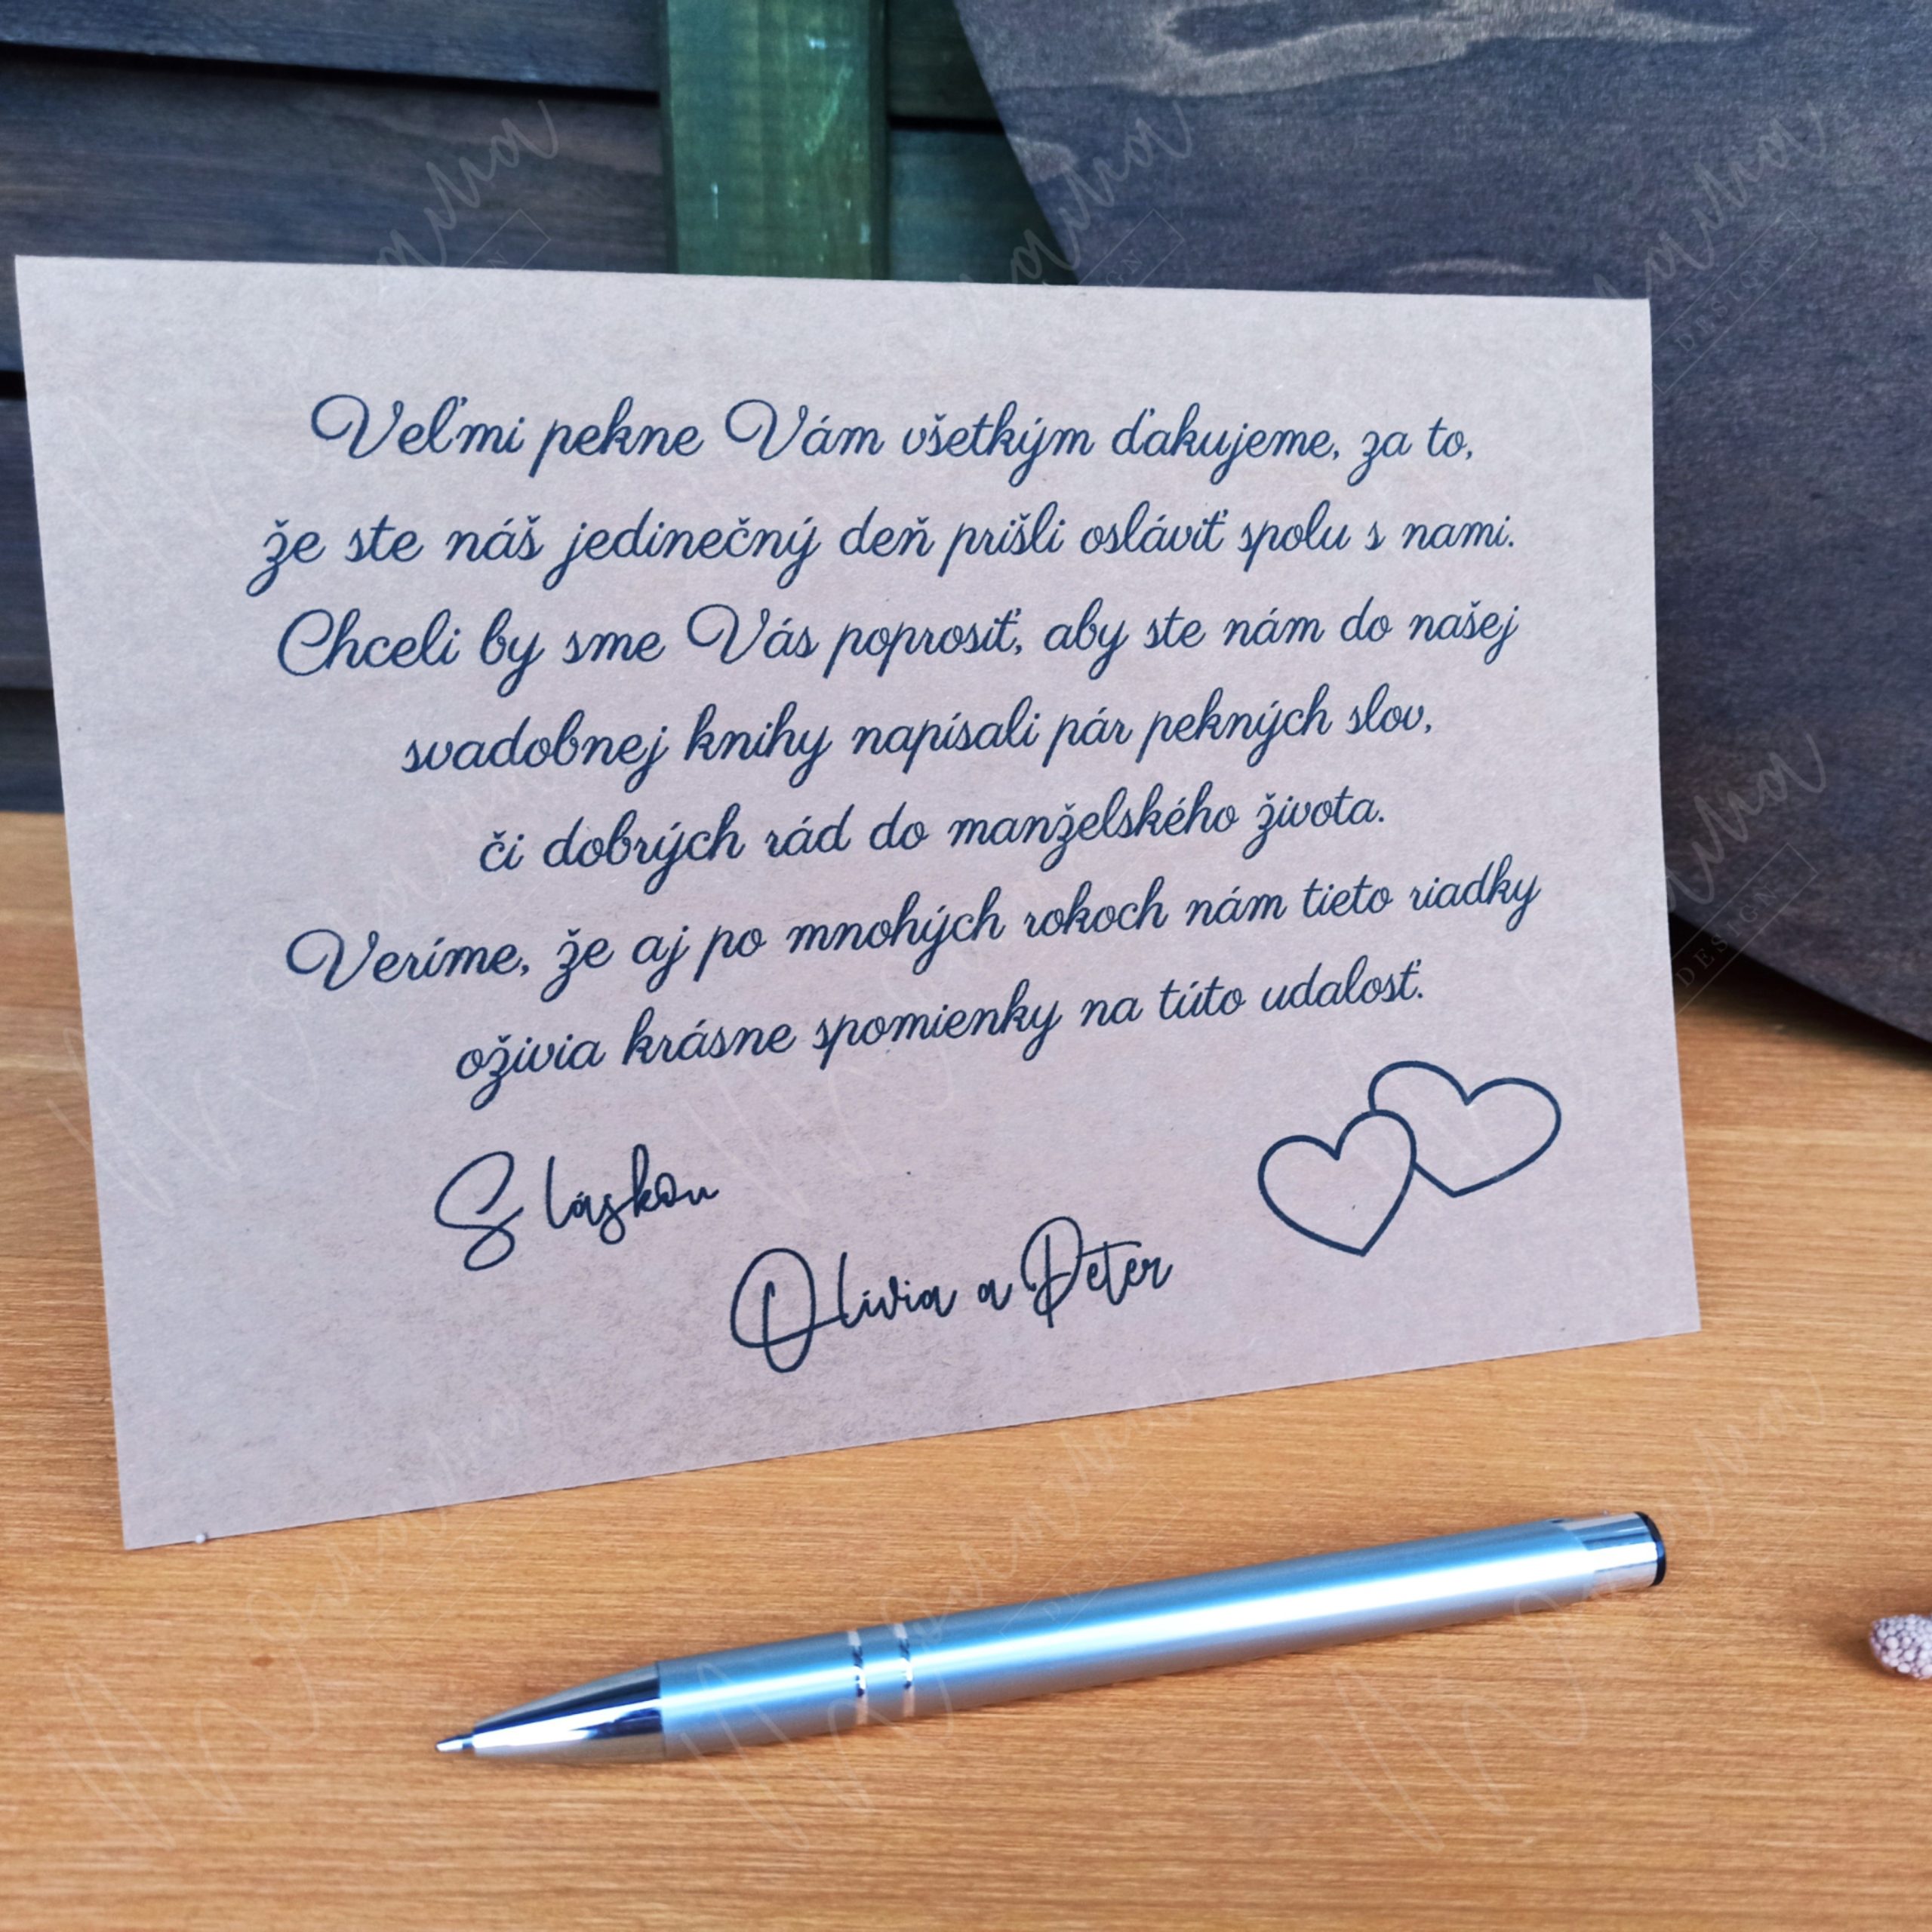 Veľmi pekne Vám všetkým ďakujeme, za to,
že ste náš jedinečný deň prišli osláviť spolu s nami.
Chceli by sme Vás poprosiť, aby ste nám do našej
svadobnej knihy napísali pár pekných slov,
či dobrých rád do manželského života.
Veríme, že aj po mnohých rokoch nám tieto riadky
oživia krásne spomienky na túto udalosť.
S láskou
Olívia a Peter
DESIGN
DESIGN